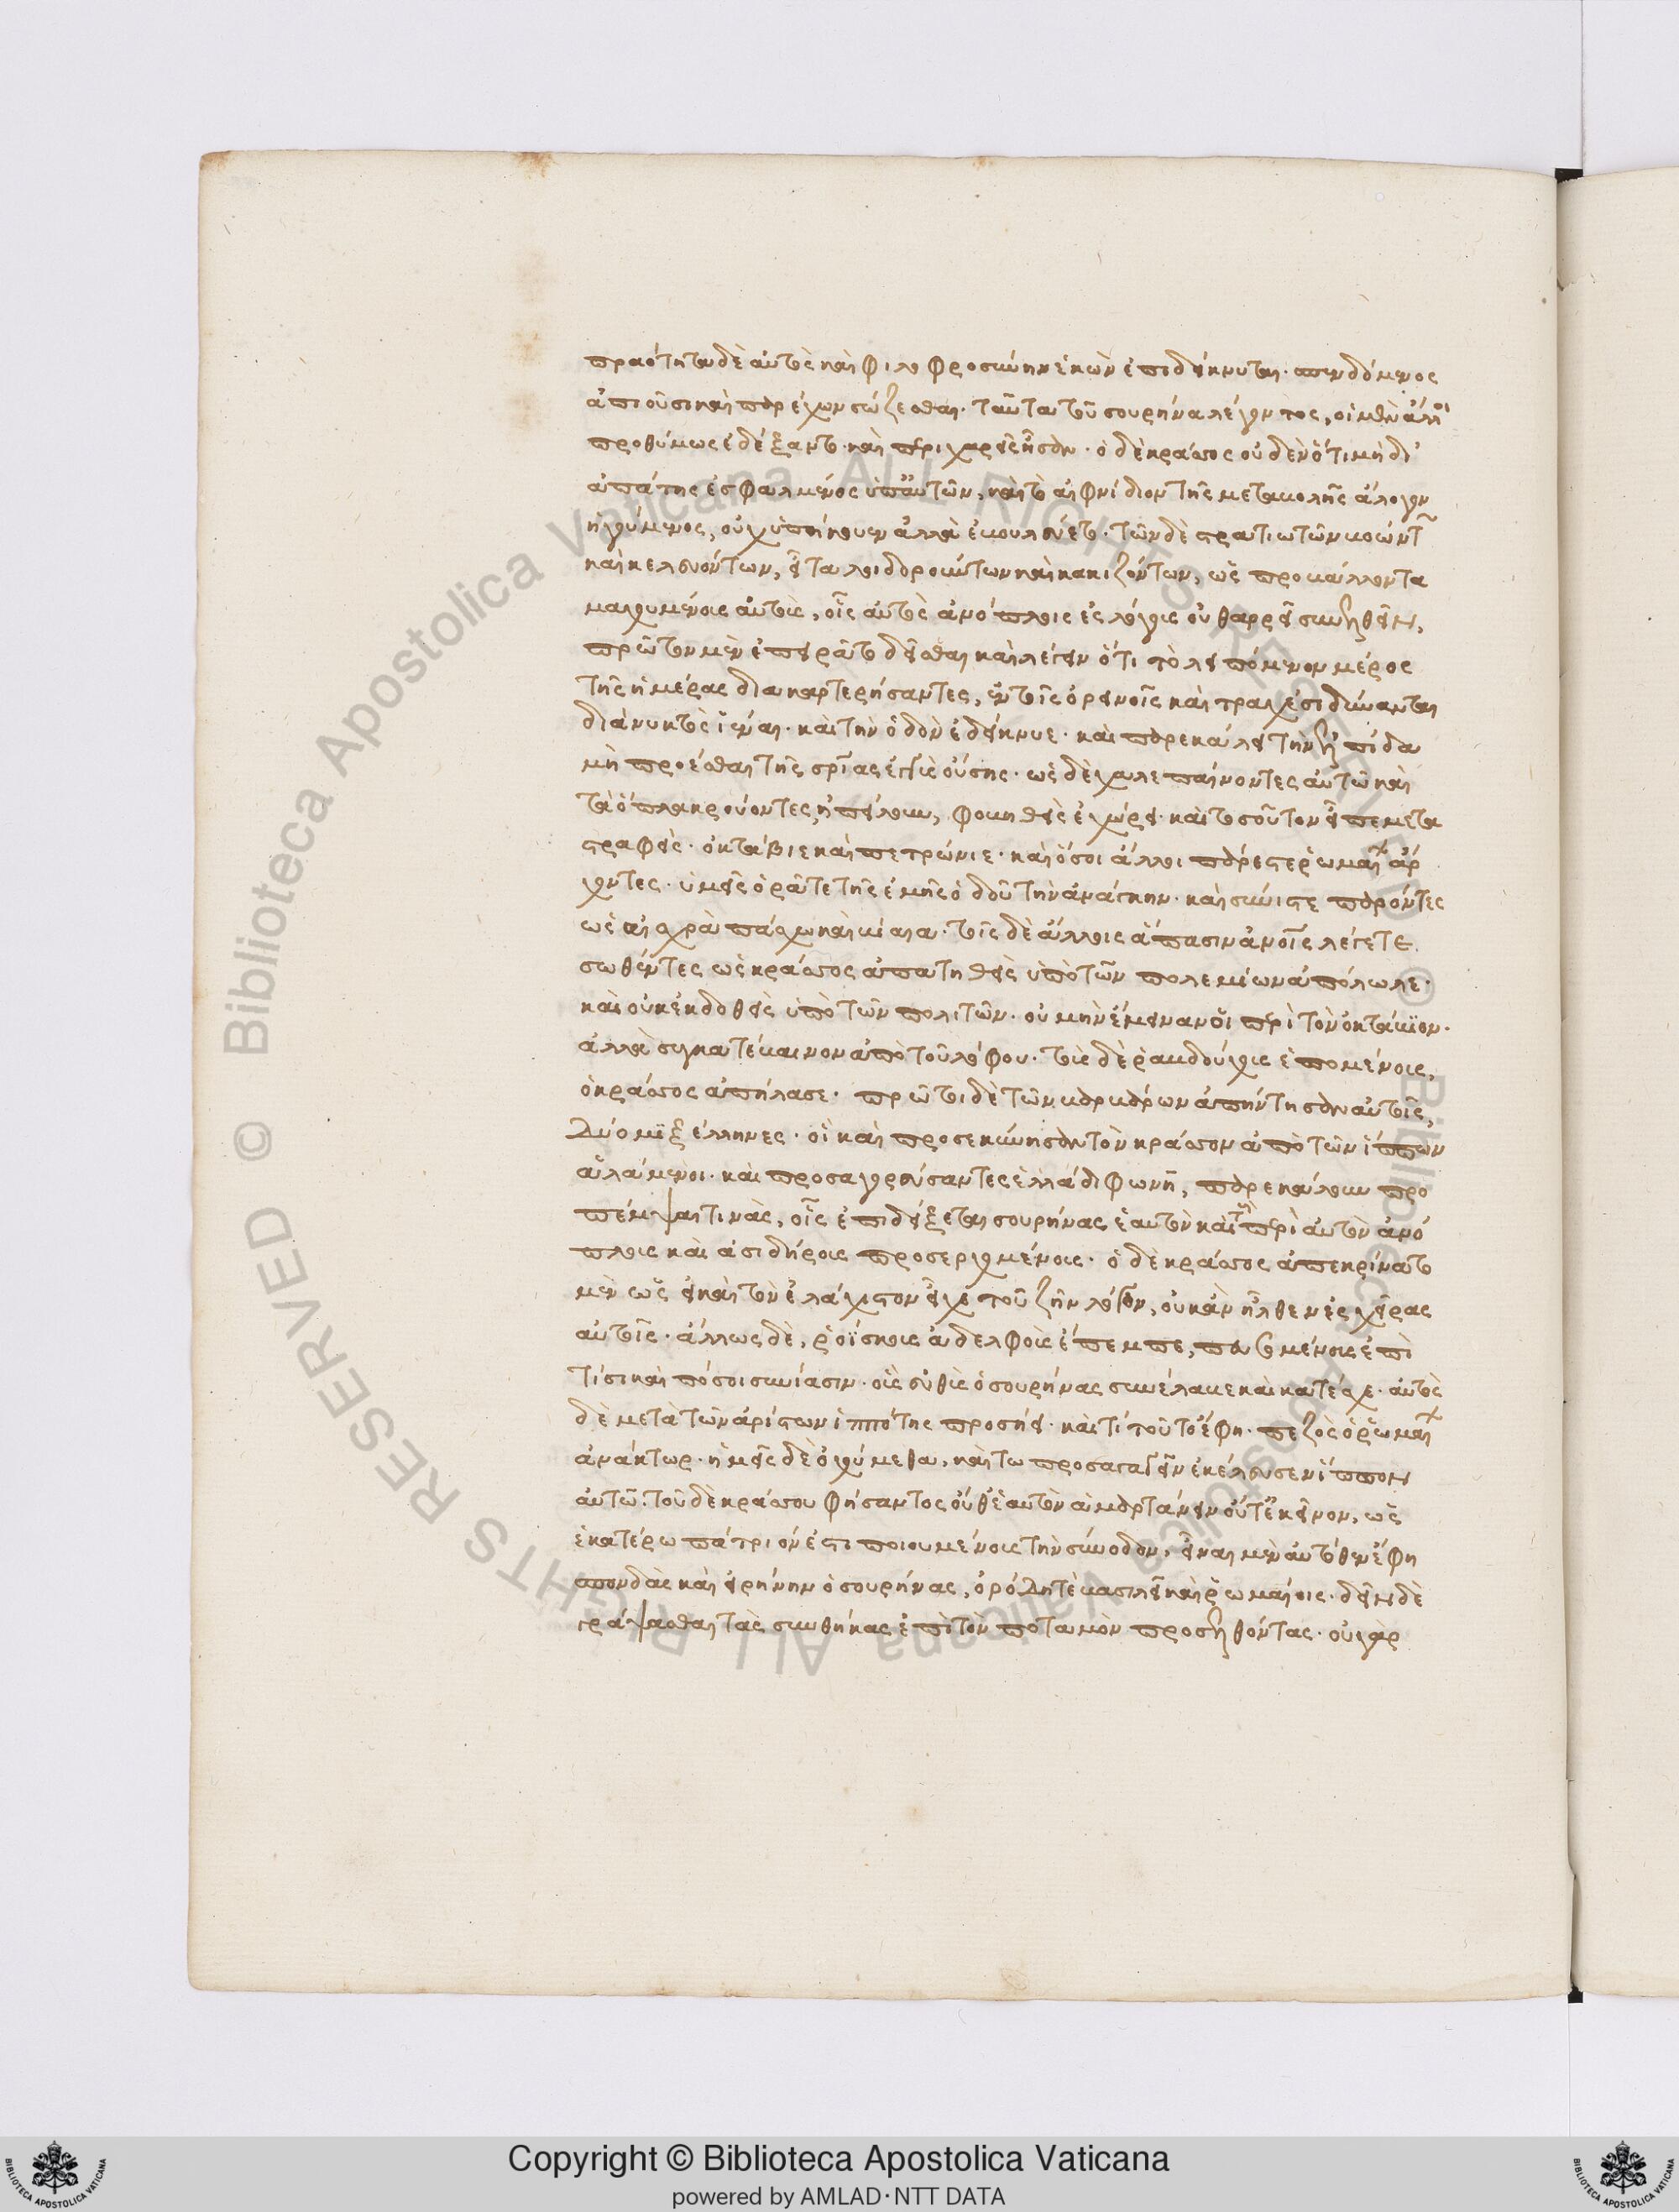 πραότητα δὲ αὐτὸς καὶ φιλοφροσύνην ἑκὼν ἐπιδείκνυται· σπενδόμενος
ἀπιοῦσι καὶ παρέχων σώζεσθαι· ταῦτα τοῦ σουρήνα λέγοντος, οἱ μὲν ἄλλοι
προθύμως ἐδέξαντο· καὶ περιχαρεῖς ἦσαν· ὁ δὲ κράσσος οὐδὲν ὅτι μὴ δι'
ἀπάτης ἐσφαλμένος ὑπ' αὐτῶν, καὶ τὸ αἰφνίδιον τῆς μεταβολῆς ἄλογον
ἡγούμενος, οὐχ ὑπήκουεν ἀλλὰ ἐβουλεύετο· τῶν δὲ στρατιωτῶν βοώντων
καὶ κελευόντων, εἶτα λοιδορούντων καὶ κακιζόντων, ὡς προβάλλοντα
μαχουμένοις αὐτοὺς, οἷς αὐτὸς ἀνόπλοις ἐς λόγους οὐ θαρρεῖ συνελθεῖν,
πρῶτον μὲν ἐπειρᾶτο δεῖσθαι καὶ λέγειν ὅτι τὸ λειπόμενον μέρος
τῆς ἡμέρας διακαρτερήσαντες, ἐν τοῖς ὀρεινοῖς καὶ τραχέσι δύνανται
διὰ νυκτὸς ἰέναι· καὶ τὴν ὁδὸν ἐδείκνυε· καὶ παρεκάλει τὴν ἐλπίδα
μὴ προέσθαι τῆς σωτηρίας ἐγγὺς οὔσης· ὡς δὲ χαλεπαίνοντες αὐτῷ καὶ
τὰ ὅπλα κρούοντες ἠπείλουν, φοβηθεὶς ἐχώρει· καὶ τοσοῦτον εἶπε μετα
στραφεὶς· ὀκτάβιε καὶ πετρώνιε· καὶ ὅσοι ἄλλοι πάρεστε ῥωμαίων ἄρ
χοντες· ὑμεῖς ὁρᾶτε τῆς ἐμῆς ὁδοῦ τὴν ἀνάγκην· καὶ σύνιστε παρόντες
ὡς αἰσχρὰ πάσχω καὶ βίαια· τοῖς δὲ ἄλλοις ἅπασιν ἀνοῖς λέγετε
σωθέντες ὡς κράσσος ἀπατηθεὶς ὑπὸ τῶν πολεμίων ἀπόλωλε·
καὶ οὐκ ἐκδοθεὶς ὑπὸ τῶν πολιτῶν· οὐ μὴν ἔμειναν οἱ περὶ τὸν ὀκτάβιον·
ἀλλὰ συγκατέβαινον ἀπὸ τοῦ λόφου· τοὺς δὲ ῥαβδούχους ἑπομένους,
ὁ κράσσος ἀπήλασε· πρῶτοι δὲ τῶν βαρβάρων ἀπήντησαν αὐτοῖς,
δύο μιξέλληνες· οἳ καὶ προσεκύνησαν τὸν κράσσον ἀπὸ τῶν ἵππων
ἁλάμενοι· καὶ προσαγορεύσαντες ἑλλάδι φωνῇ, παρεκάλουν προ
πέμψαι τινὰς, οἷς ἐπιδείξεται σουρήνας ἑαυτὸν καὶ τοὺς περὶ αὐτὸν ἀνό
πλους καὶ ἀσιδήρους προσερχομένους· ὁ δὲ κράσσος ἀπεκρίνατο
μὲν ὡς εἰ καὶ τὸν ἐλάχιστον εἶχε τοῦ ζῆν λόγον, οὐκ ἂν ἦλθεν εἰς χεῖρας
αὐτοῖς· ἄλλως δὲ, ῥοϊσκίους ἀδελφοὺς ἔπεμπε, πευσομένους ἐπὶ
τίσι καὶ πόσοι συνίασιν· οὓς εὐθὺς ὁ σουρήνας συνέλαβε καὶ κατέσχε· αὐτὸς
δὲ μετὰ τῶν ἀρίστων ἱππότης προσῄει· καὶ τί τοῦτο ἔφη· πεζὸς ὁ ῥωμαίων
ἀνάκτωρ· ἡμεῖς δὲ ὀχούμεθα, καὶ τω προσαγαγεῖν ἐκέλευσεν ἵππον
αὐτῷ· τοῦ δὲ κράσσου φήσαντος οὔθ' ἑαυτὸν ἁμαρτάνειν οὔτ' ἐκεῖνον, ὡς
ἑκατέρω πάτριόν ἐστι ποιουμένους τὴν σύνοδον, εἶναι μὲν αὐτόθεν ἔφη
σπονδὰς καὶ εἰρήνην ὁ σουρήνας, ὀρόδῃ τε βασιλεῖ καὶ ῥωμαίοις· δεῖν δὲ
γράψασθαι τὰς συνθήκας ἐπὶ τὸν ποταμὸν προσελθόντας· οὐ γὰρ
Copyright © Biblioteca Apostolica Vaticana
powered by AMLAD·NTT DATA